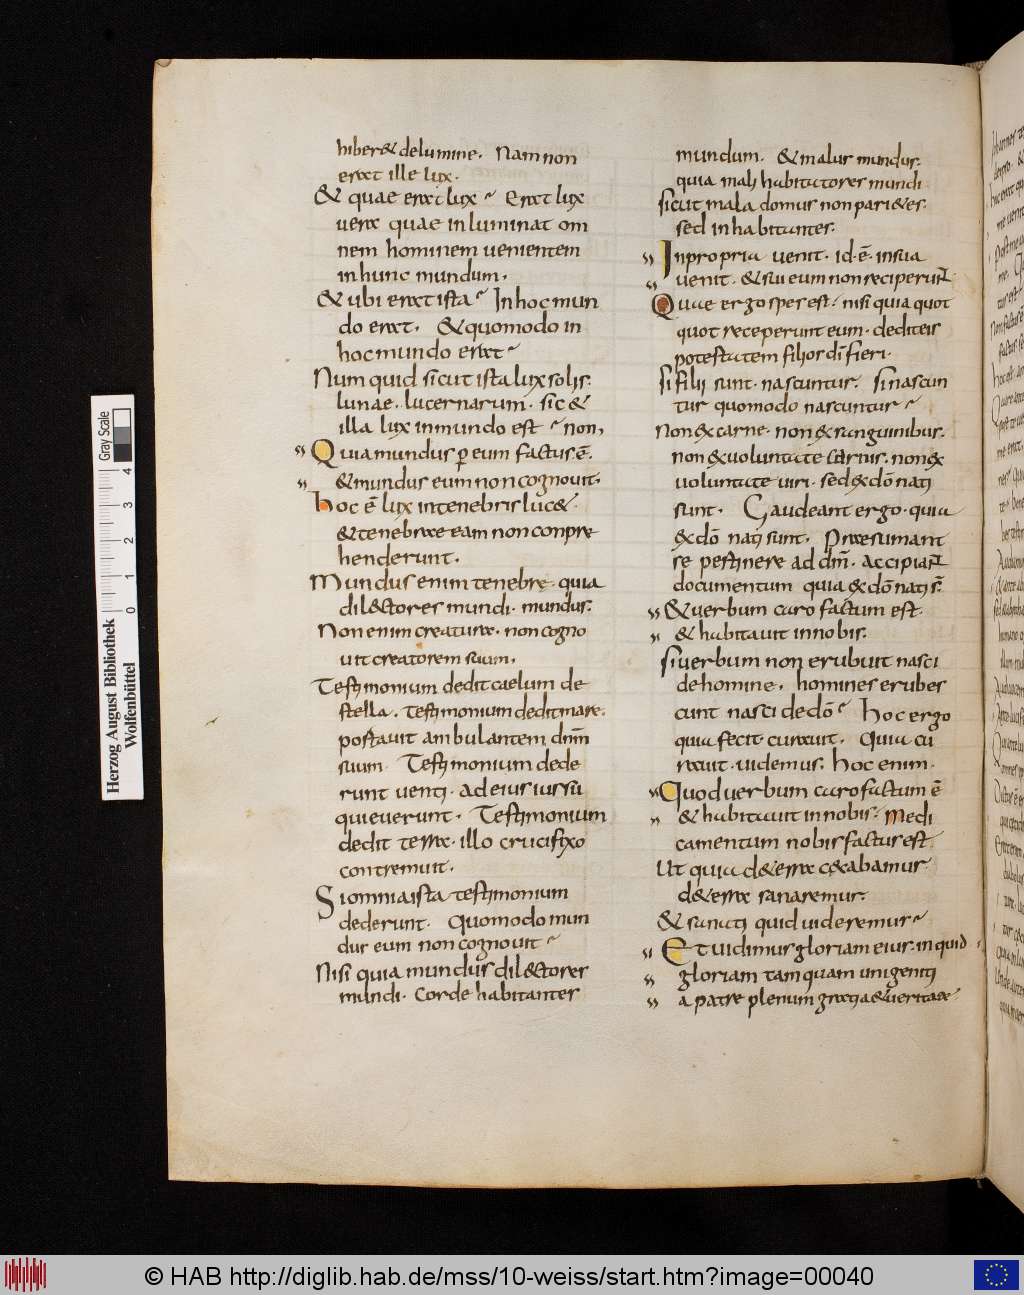 hiber& delumine. Nam non
erat ille lux.
& quae erat lux? Erat lux
uera quae inluminat om
nem hominem uenientem
in hunc mundum.
& ubi erat ista? In hoc mun
do erat. & quomodo in
hoc mundo erat?
Num quid sicut ista lux solis.
lunae. lucernarum. sic &
illa lux in mundo est? non,
Quia mundus p̄ eum factus ē.
& mundus eum non cognouit.
hoc ē lux in tenebris luc&.
& tenebrae eam non conpre
henderunt.
Mundus enim tenebre. quia
dil&ctores mundi. mundus.
Non enim creatura. non cogno
uit creatorem suum.
Testimonium dedit caelum de
stella. testimonium dedit mare.
portauit ambulantem dnm̄
suum. Testimonium dede
runt uenti. ad eius iussū
quieuerunt. Testimonium
dedit terra. illo crucifixo
contremuit.
Si omnia ista testimonium
dederunt. Quomodo mun
dus eum non cognouit?
Nisi quia mundus dil&ctores
mundi. corde habitanter
mundum. & malus mundus.
quia mali habitatores mundi
sicut mala domus non pari&es.
sed inhabitantes.
In propria uenit. id. ē. in sua
uenit. & sui eum non receperunt.
Quae ergo spes est. nisi quia quot
quot receperunt eum. dedit eis
potestatem filios di fieri.
si filii sunt. nascuntur. si nascun
tur quomodo nascuntur?
Non ex carne. non ex sanguinibus.
non ex uoluntate carnis. non ex
uoluntate uiri. sed ex dō nati
sunt. Gaudeant ergo. quia
ex dō nati sunt. Praesumant
se pertinere ad dm̄. accipiant
documentum quia ex dō nati s̄.
& uerbum caro factum est.
& habitauit in nobis.
si uerbum non erubuit nasci
de homine. homines erubes
cunt nasci de dō? hoc ergo
quia fecit. curauit. Quia cu
rauit. uidemus. hoc enim.
Quod uerbum caro factum ē
& habitauit in nobis. Medi
camentum nobis factus est.
Ut quia d& erra c&xabamur.
d& erra sanaremur.
& sanati quid uideremus?
Et uidimus gloriam eius. inquid
gloriam tamquam unigeniti
a patre plenum gratia & ueritate.
Herzog August Bibliothek
Wolfenbüttel
0 1 2 3 4
Gray Scale
© HAB http://diglib.hab.de/mss/10-weiss/start.htm?image=00040